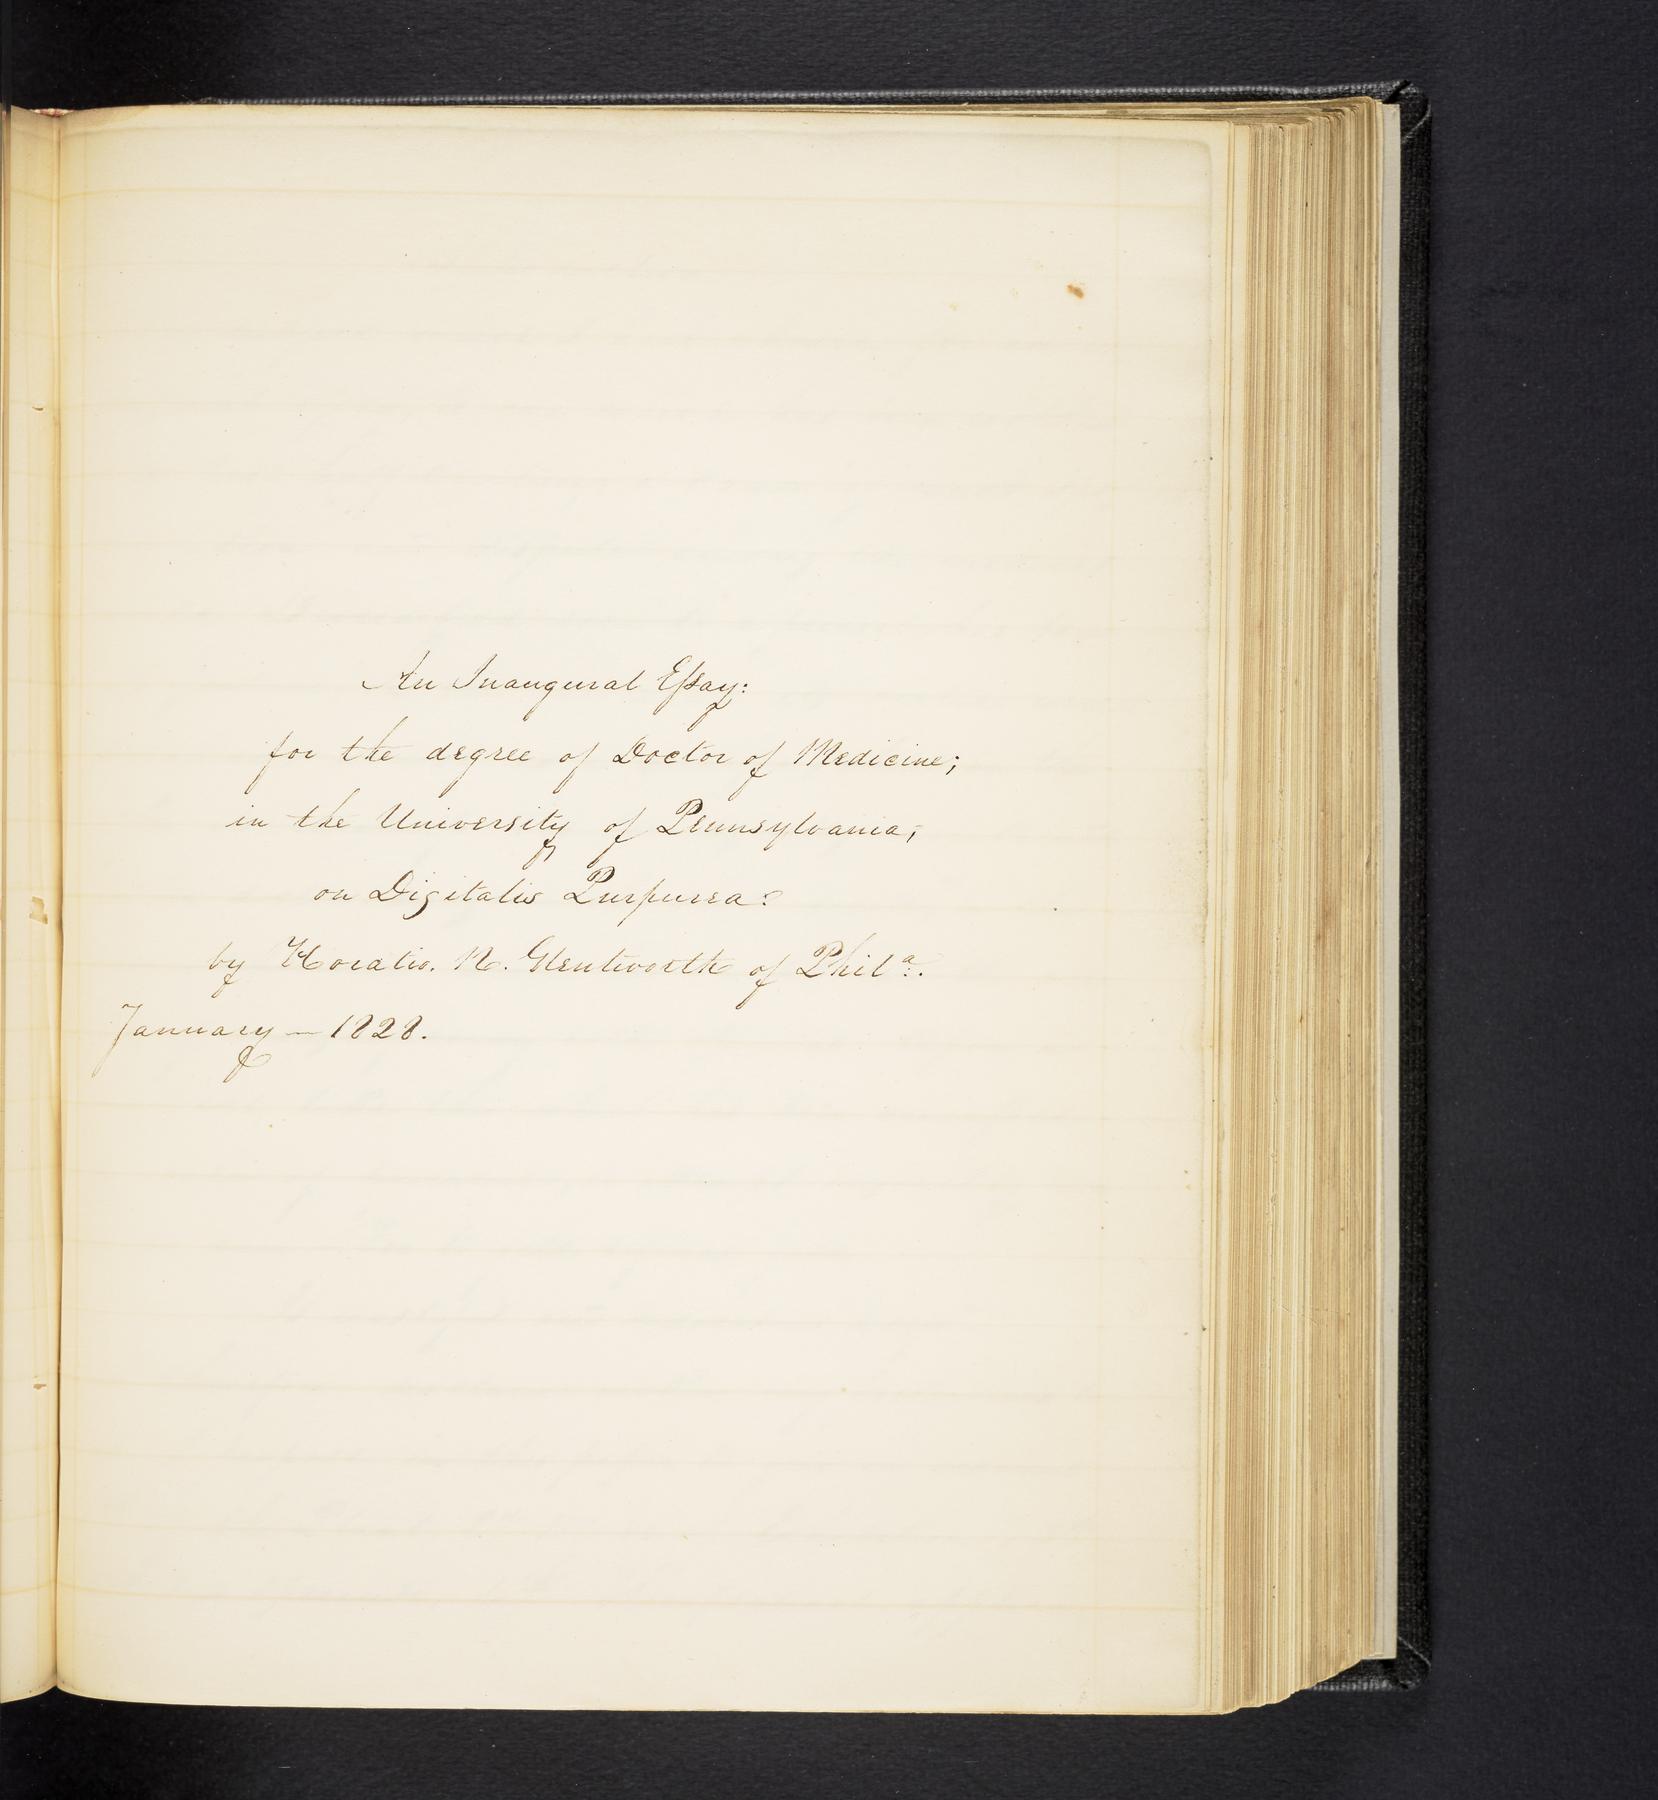 An Inaugural Eſsay:
for the degree of Doctor of Medicine;
in the University of Pennsylvania;
on Digitalis Purpurea:
by Horatio. N. Glentworth of Philª.
January — 1828.